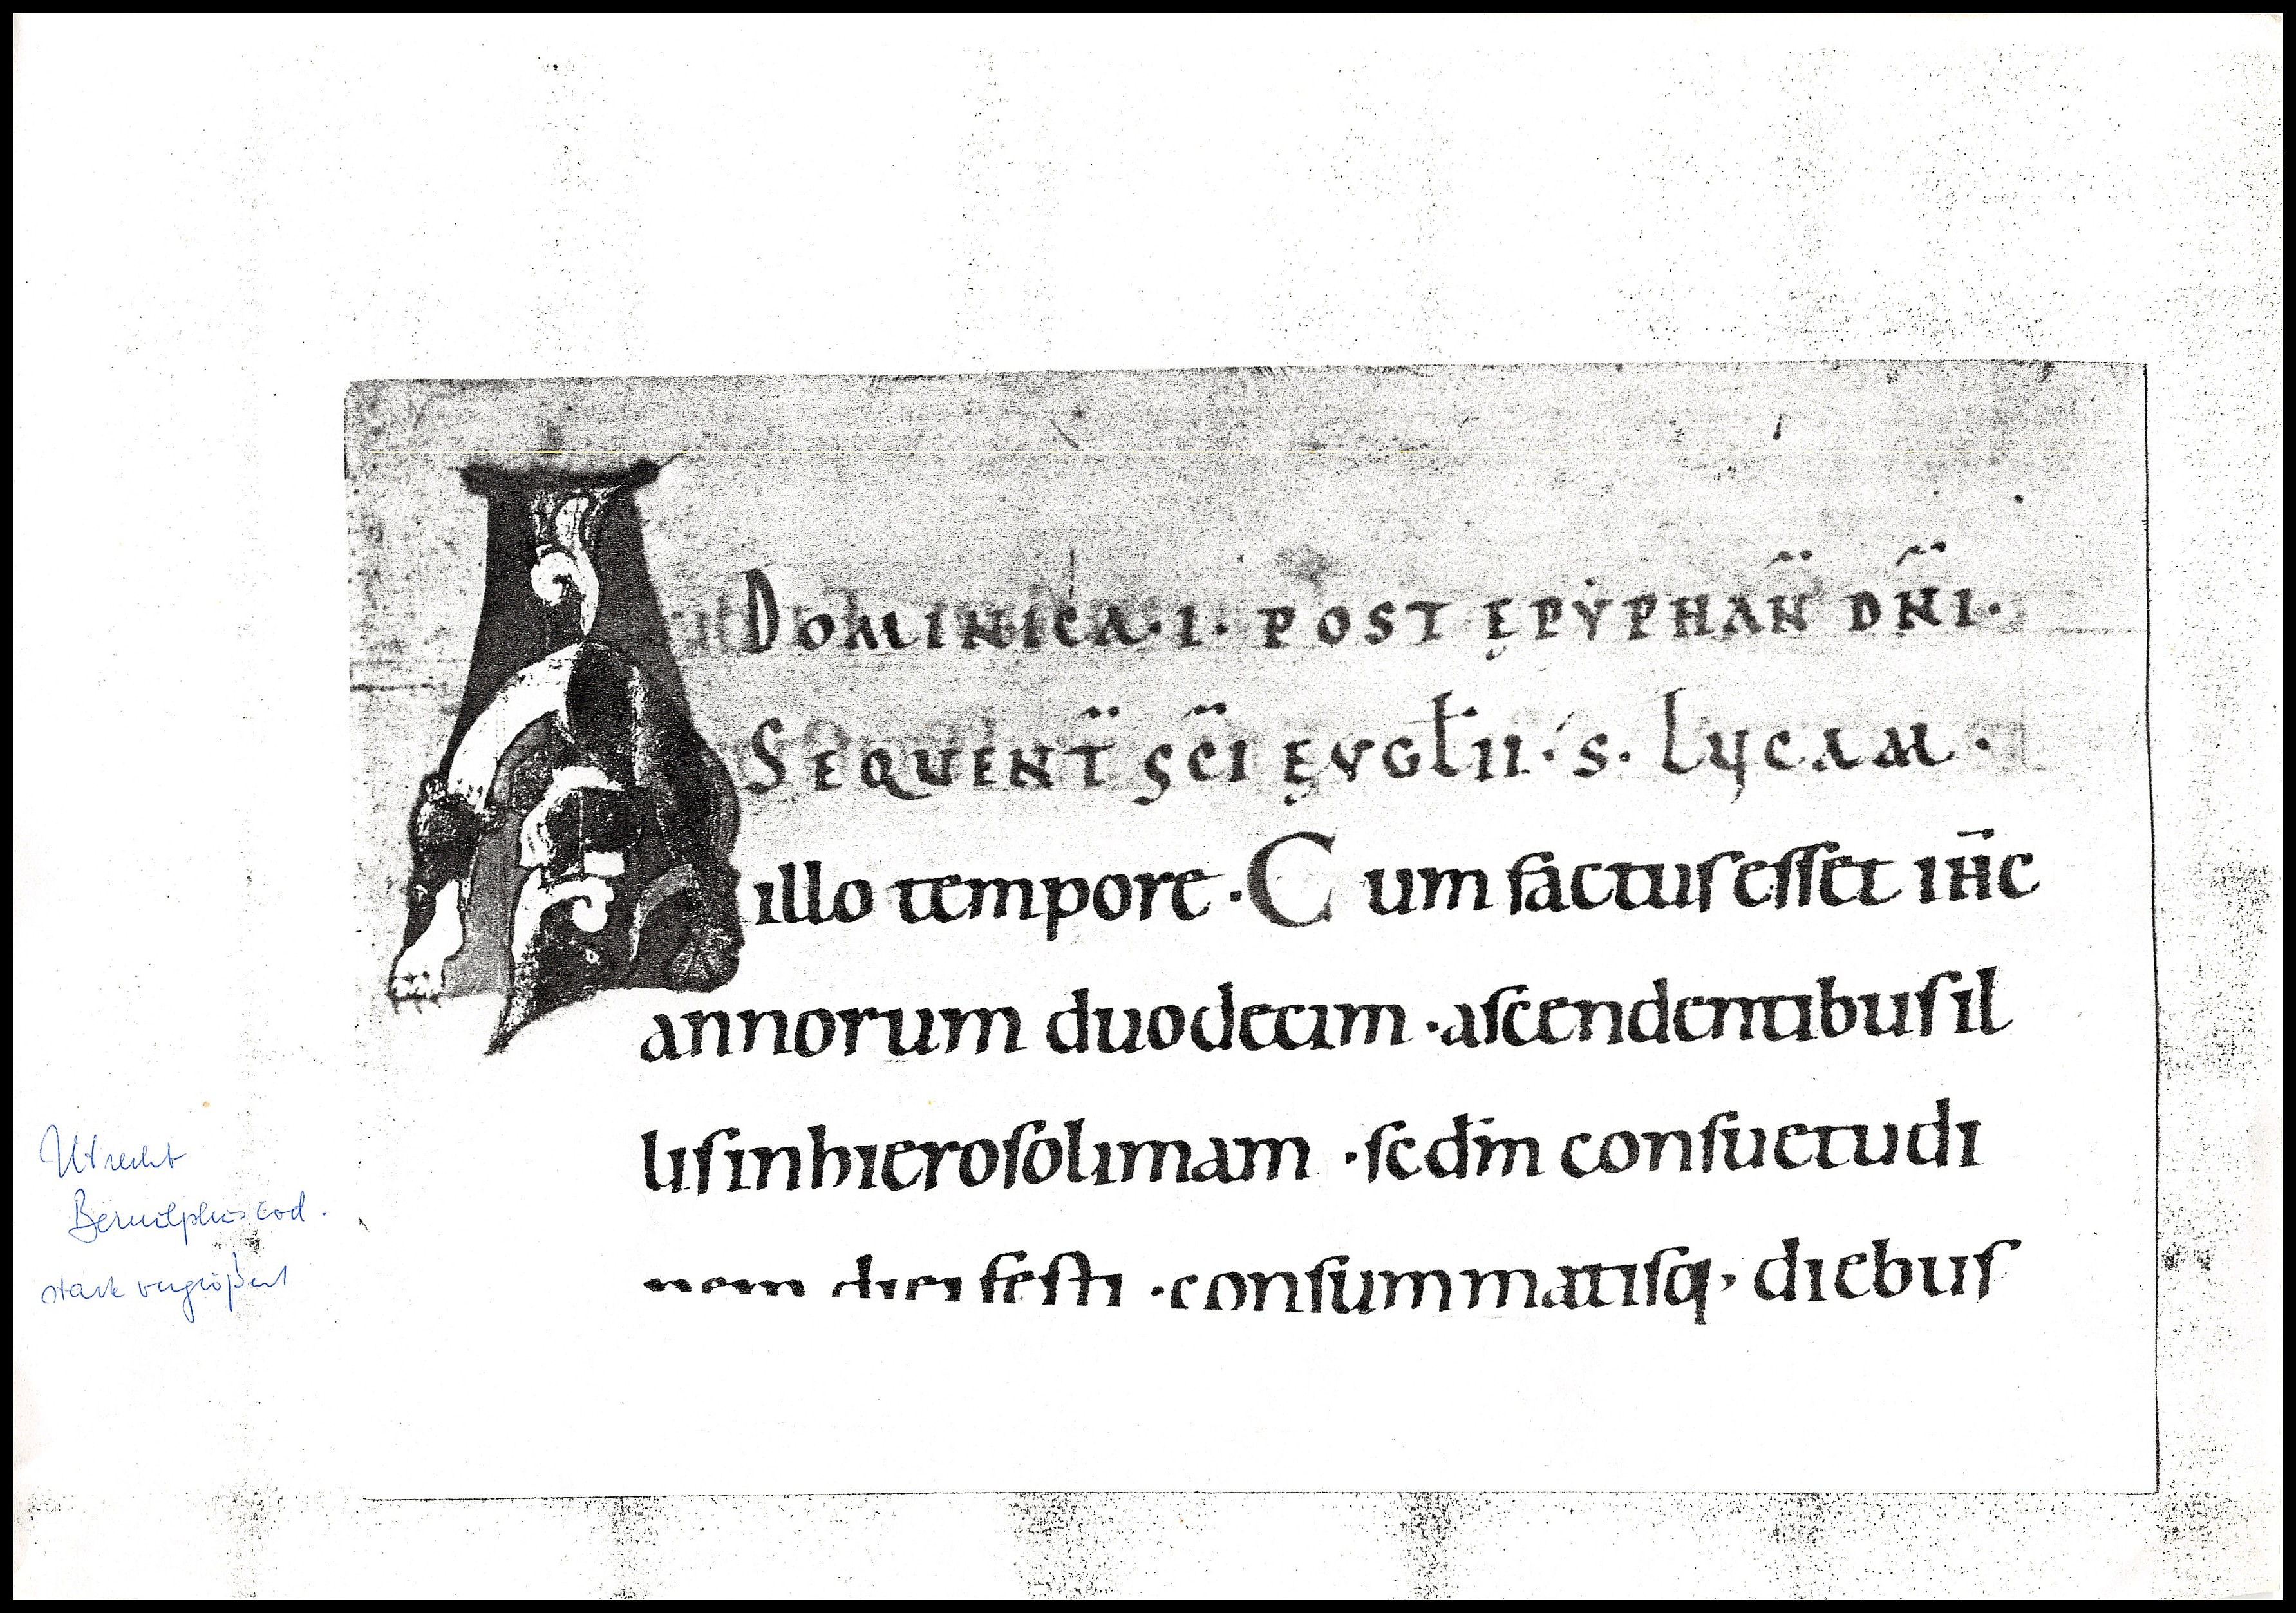 DOMINICA·I· POST ĘPYPHAÑ DÑI·
SEQUENT̄ SC̄I ĘVGŁII· S· LUCAM·
illo tempore · Cum factus esset ih̄c
annorum duodecim · ascendentibus il
lis in hierosolimam · scdm̄ consuetudi
nem diei festi · consummatisq; diebus
Utrecht
Bernulphus cod.
stark vergrößert